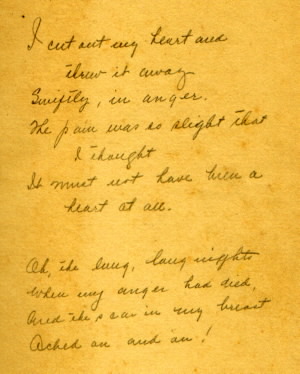 I cut out my heart and
threw it away
Swiftly, in anger.
The pain was so slight that
I thought
It must not have been a
heart at all.
Oh, the long, long nights
When my anger had died,
And the scar in my breast
Ached on and on!